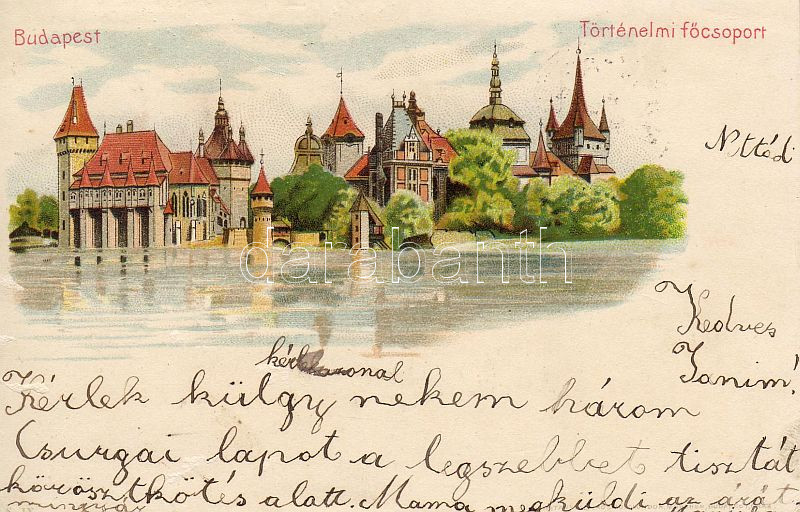 Budapest
Történelmi főcsoport
darabanth
Kedves
Janim!
Kérlek külgy nekem három
Csurgai lapot a legszebbet tisztát
körösztkötés alatt. Mama megküldi az árát